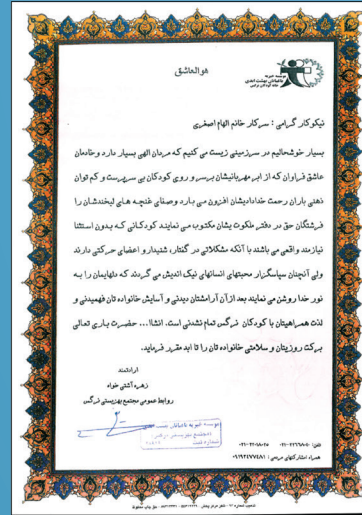 هوالعاشق
موسسه خیریه
باغبانان بهشت ابدی
خانه کودکان نرگس
نیکوکار گرامی : سرکار خانم الهام اصغری
بسیار خوشحالیم در سرزمینی زیست می کنیم که مردان الهی بسیار دارد وخادمان
عاشق فراوان که از ابر مهربانیشان برسر و روی کودکان بی سرپرست و کم توان
ذهنی باران رحمت خدادادیشان افزون می بارد وصفای غنچه های لبخندشان را
فرشتگان حق در دفتر ملکوت یشان مکتوب می نمایند کودکانی که بدون استثنا
نیازمند واقعی می باشند با آنکه مشکلاتی در گفتار، شنیدار و اعضای حرکتی دارند
ولی آنچنان سپاسگزار محبتهای انسانهای نیک اندیش می گردند که دلهایمان را به
نور خدا روشن می نمایند بعد از آن آرامشتان دیدنی و آسایش خانواده تان فهمیدنی و
لذت همراهیتان با کودکان نرگس تمام نشدنی است. انشاا... حضرت باری تعالی
برکت روزیتان و سلامتی خانواده تان را تا ابد مقرر فرماید.
ارادتمند
زهره آشتی خواه
روابط عمومی مجتمع بهزیستی نرگس
موسسه خیریه باغبانان بهشت
مجتمع بهزیستی نرگس
شماره ثبت